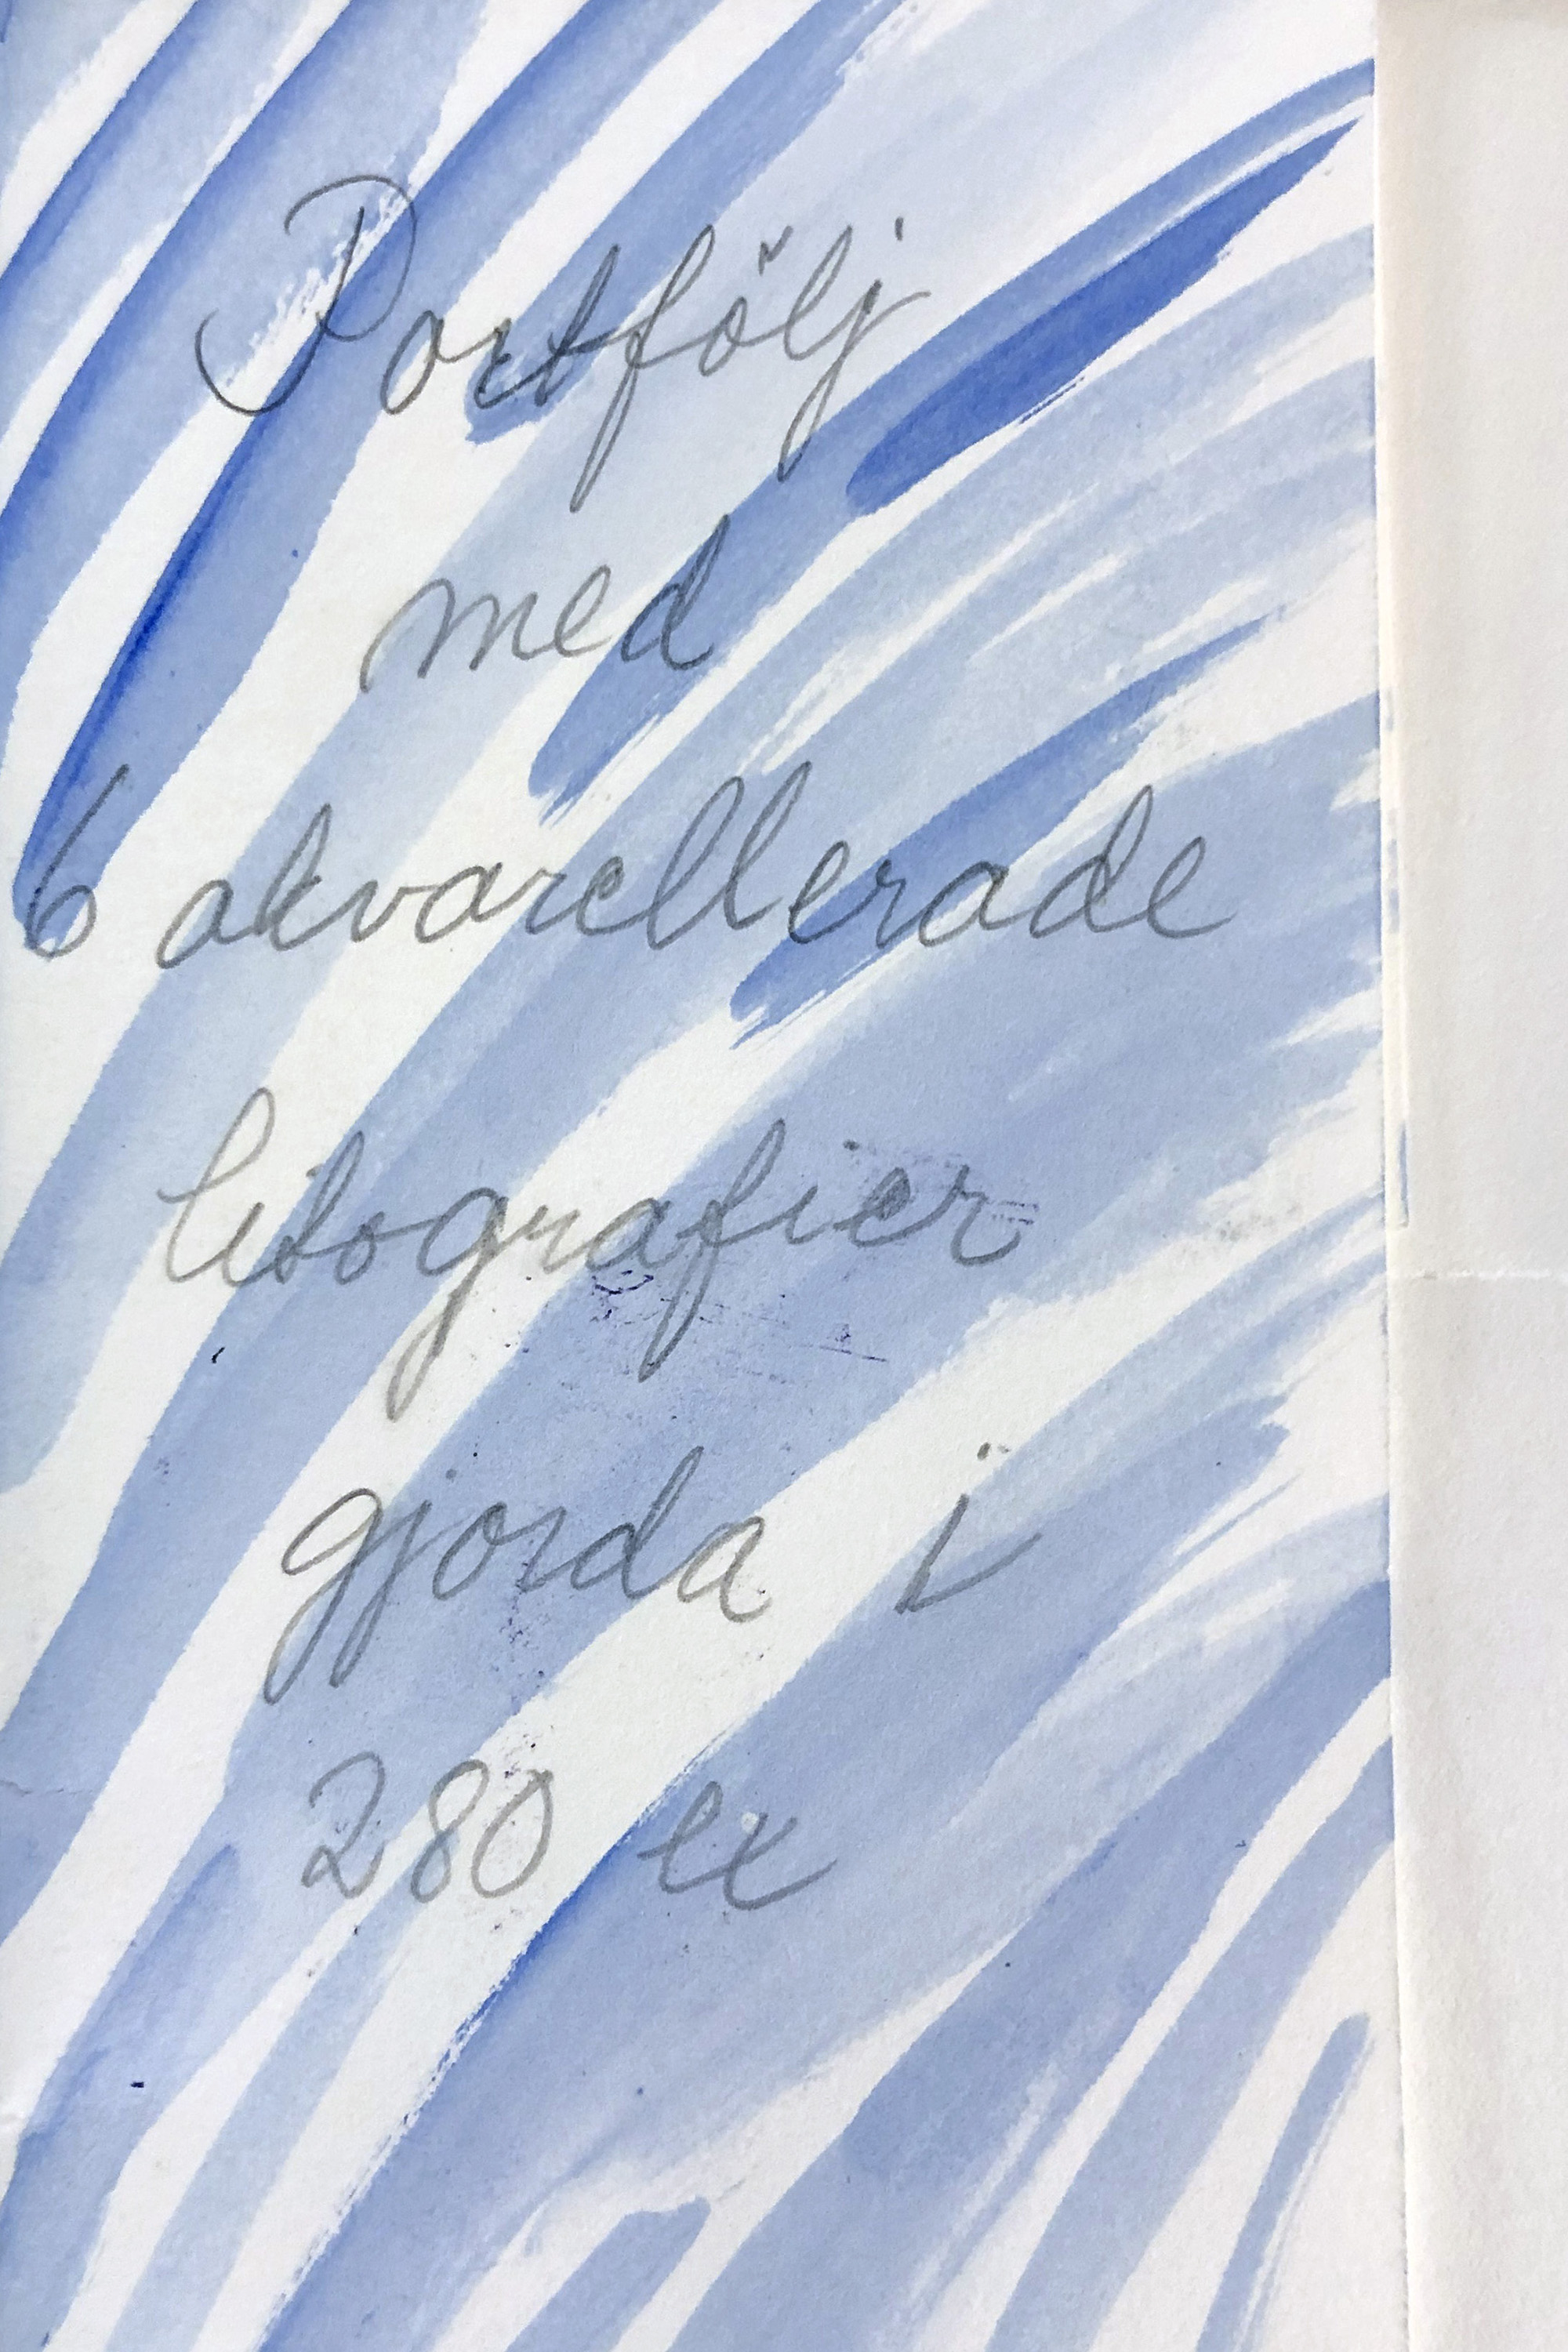 Portfölj
med
6 akvarellerade
litografier
gjorda i
280 ex